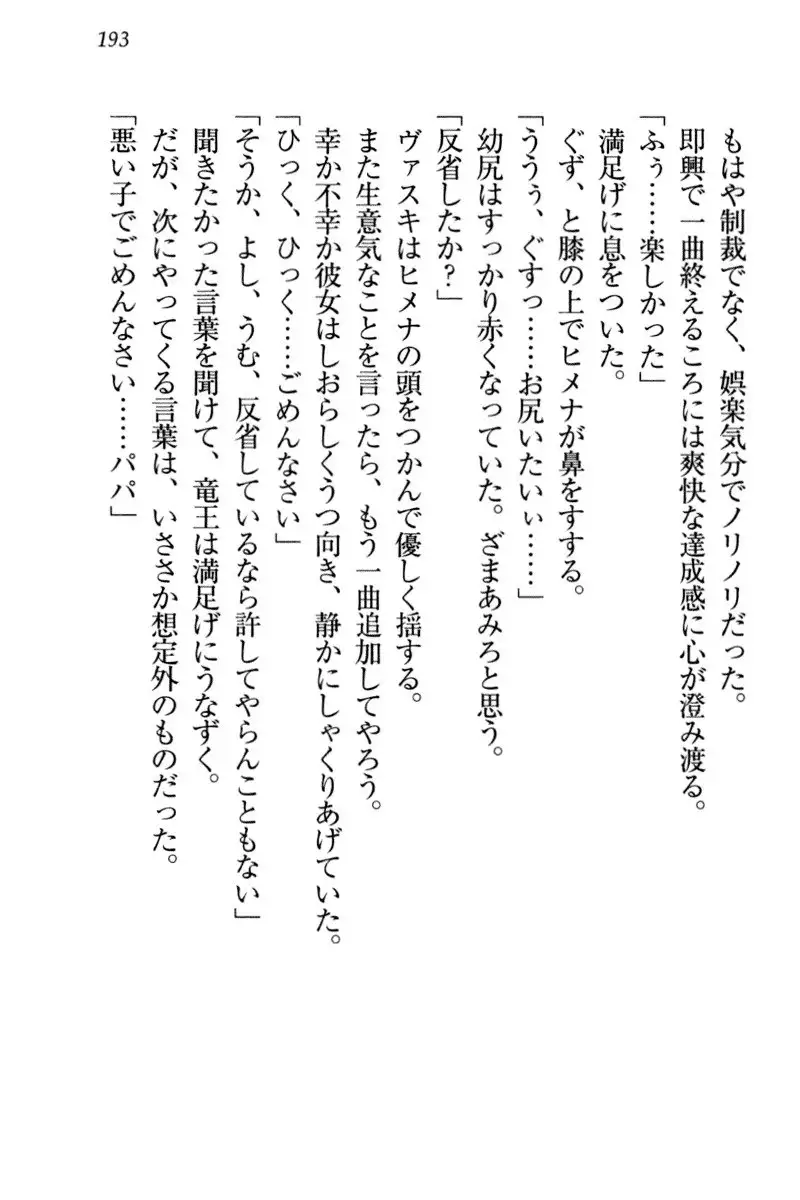 193
もはや制裁でなく、娯楽気分でノリノリだった。
即興で一曲終えるころには爽快な達成感に心が澄み渡る。
「ふぅ……楽しかった」
満足げに息をついた。
ぐず、と膝の上でヒメナが鼻をすする。
「ううぅ、ぐすっ……お尻いたいぃ……」
幼尻はすっかり赤くなっていた。ざまあみろと思う。
「反省したか？」
ヴァスキはヒメナの頭をつかんで優しく揺する。
また生意気なことを言ったら、もう一曲追加してやろう。
幸か不幸か彼女はしおらしくうつ向き、静かにしゃくりあげていた。
「ひっく、ひっく……ごめんなさい」
「そうか、よし、うむ、反省しているなら許してやらんこともない」
聞きたかった言葉を聞けて、竜王は満足げにうなずく。
だが、次にやってくる言葉は、いささか想定外のものだった。
「悪い子でごめんなさい……パパ」